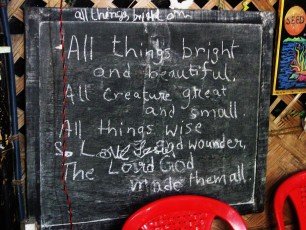 all things by the
All things bright
and beautiful,
All Creature great
and small.
All things wise
wounder,
The Lord God
made them all.
SEED